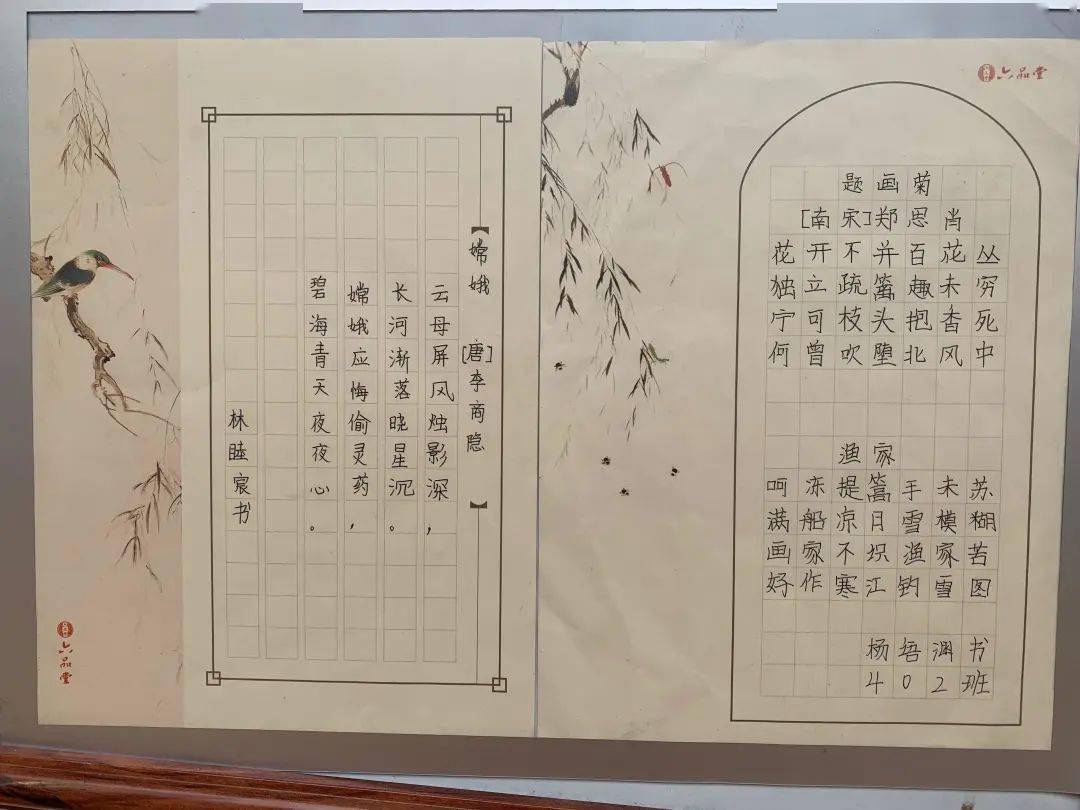 【嫦娥 [唐]李商隐】
云母屏风烛影深,
长河渐落晓星沉。
嫦娥应悔偷灵药,
碧海青天夜夜心。
林睦宸书
六品堂
六品堂
题画菊
[南宋]郑思肖
花开不并百花丛
独立疏篱趣未穷
宁可枝头抱香死
何曾吹堕北风中
渔家
呵冻提篙手未苏
满船凉日雪模糊
画家不识渔家苦
好作寒江钓雪图
杨培渊书
402班